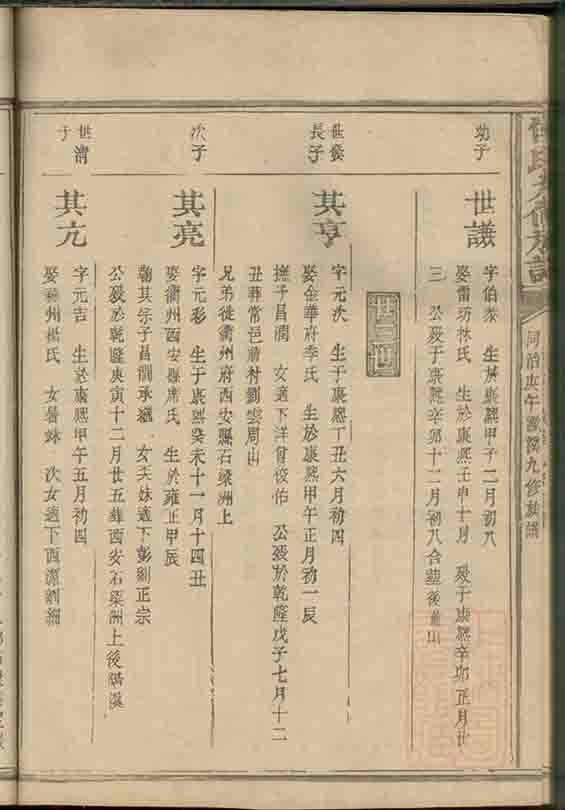 氏九修族譜
同治庚午 九修族譜
幼子
世謙
字伯恭 生於康熙甲子二月初八
娶雷坊林氏 生於康熙壬申十月 殁于康熙辛卯正月廿
三 公殁于康熙辛卯十二月初八合葬後 山
世
世
長子
其亨
字元次 生于康熙丁丑六月初四
娶金華府季氏 生於康熙甲午正月初一辰
撫子昌潤 女適下洋曾俊佑 公殁於乾隆戊子七月十二
丑葬常邑前村劉雲周山
兄弟徙衢州府西安縣石梁洲上
次子
其亮
字元彩 生于康熙癸未十一月十四丑
娶衢州西安縣席氏 生於雍正甲辰
與其宗子昌潤承 女夭妹適下彭劉正宗
公殁於乾隆庚寅十二月廿五葬西安石梁洲上後 溪
世清
子
其亢
字元吉 生於康熙甲午五月初四
娶 州楊氏 女暑妹 次女適下西 劉